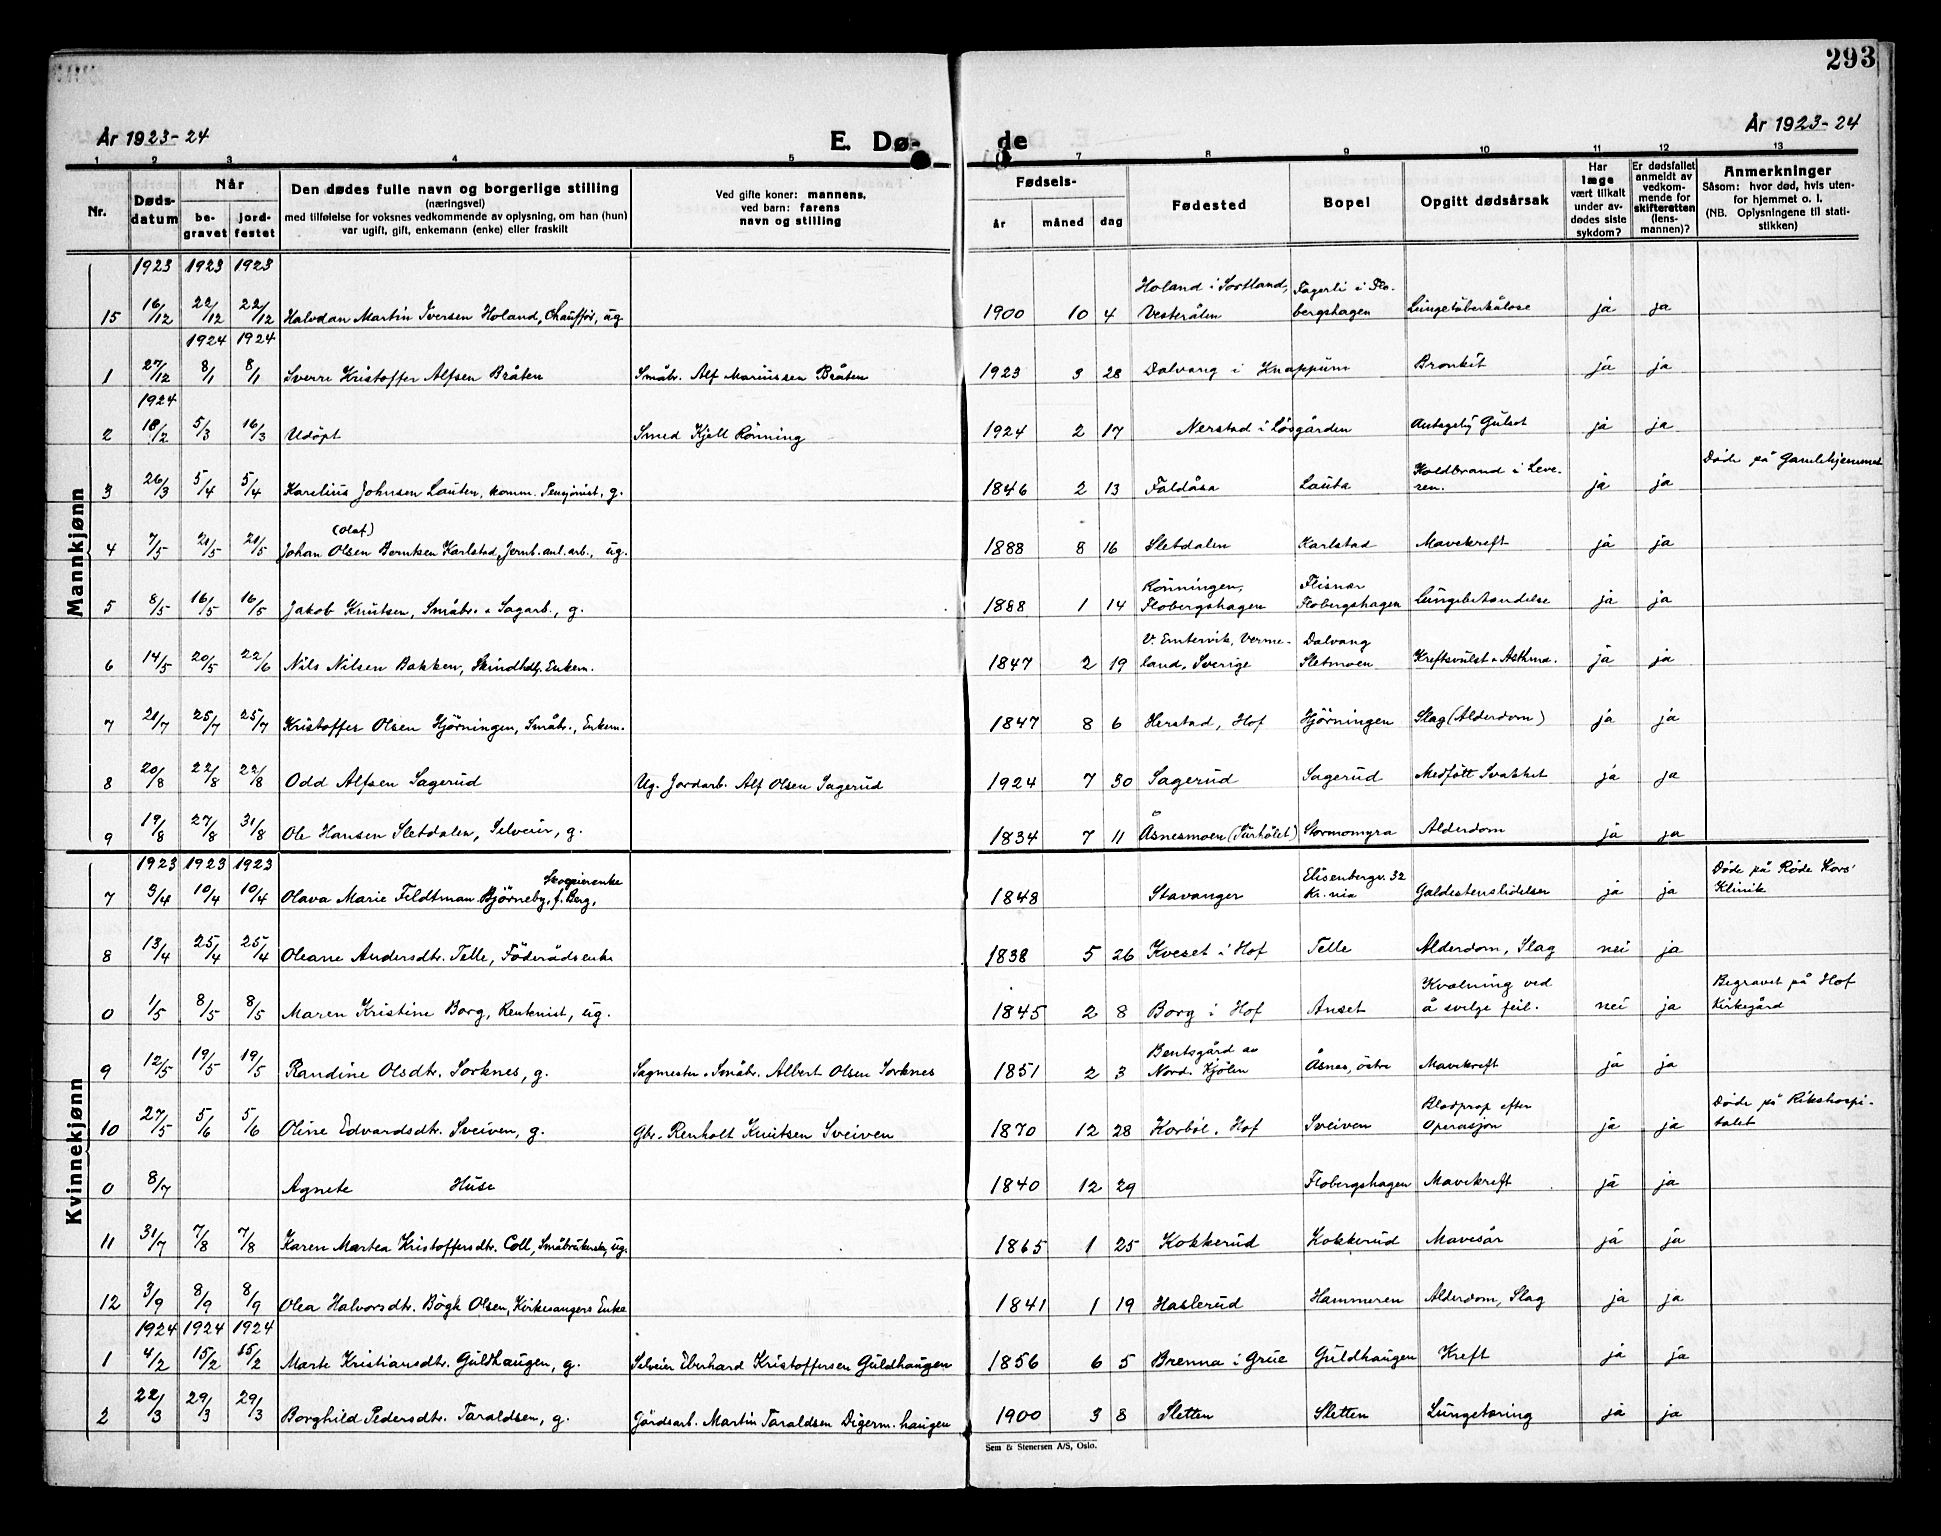 293
År 1923-24 E. Dø- de År 1923-24
1 2 3 4 5 7 8 9 10 11 12 13
Nr. Døds-datum Når be-gravet jord-festet Den dødes fulle navn og borgerlige stilling (næringsvei) med tilføielse for voksnes vedkommende av oplysning, om han (hun) var ugift, gift, enkemann (enke) eller fraskilt Ved gifte koner: mannens, ved barn: farens navn og stilling Fødsels- år måned dag Fødested Bopel Opgitt dødsårsak Har læge vært tilkalt under av-dødes siste sykdom? Er dødsfallet anmeldt av vedkom-mende for skifteretten (lens-mannen)? Anmerkninger Såsom: hvor død, hvis uten-for hjemmet o. l. (NB. Oplysningene til stati-stikken)
Mannkjønn
1923 1923 1923
15 16/12 22/12 22/12 Halvdan Martin Iversen Holand, Chauffør, ug. 1900 10 4 Holand i Sortland, Vesterålen Fagerli i Flo-bergshagen Lungetuberkulose ja ja
1924 1924
1 27/12 8/1 8/1 Sverre Kristoffer Alfsen Bråten Småbr. Alf Mariussen Bråten 1923 3 28 Dalvang i Knappum Bronkit ja ja
1924
2 18/2 5/3 16/3 Udöpt Smed Kjell Rönning 1924 2 17 Nerstad i Lösgården Antagelig Gulsot ja ja
3 26/3 5/4 5/4 Karelius Johnsen Lauten, komm. Pensjonist, g. 1846 2 13 Faldåsa Lauta Koldbrand i Leve-ren. ja ja Døde på Gamlehjemmet
(Olaf)
4 7/5 21/5 21/5 Johan Olsen Berntsen Karlstad, Jernb.anl.arb., ug. 1888 8 16 Sletdalen Karlstad Mavekreft ja ja
5 8/5 16/5 16/5 Jakob Knutsen, Småbr. & Sagarb., g. 1888 1 14 Rönningen, Flobergshagen Flisnær Flobergshagen Lungebetændelse ja ja
6 14/5 20/5 22/6 Nils Nilsen Bakken, Skindhdlg. Enkem. 1847 2 19 V. Emtervik, Verme-land, Sverige Dalvang Sletmoen Kreftsvulst & Asthma. ja ja
7 21/7 25/7 25/7 Kristoffer Olsen Hjörningen, Småbr., Enkem. 1847 8 6 Herstad, Hof Hjörningen Slag (Alderdom) ja ja
8 20/8 22/8 22/8 Odd Alfsen Sagerud Ug. Jordarb. Alf Olsen Sagerud 1924 7 30 Sagerud Sagerud Medfött Svakhet ja ja
9 19/8 27/8 31/8 Ole Hansen Sletdalen, Selveier, g. 1834 7 11 Åsnesmoen (Purhölet) Stormomyra Alderdom ja ja
Kvinnekjønn
1923 1923 1923
7 3/4 10/4 10/4 Olava Marie Feldtman Bjørneby, f. Berg, Skogeierenke 1848 Stavanger Elisenbergv. 32 Kr.nia Galdestenslidelser ja ja Døde på Røde Kors' Klinik
8 13/4 25/4 25/4 Oleane Andersdtr. Telle, Föderådsenke 1838 5 26 Kveset i Hof Telle Alderdom, Slag nei ja
0 1/5 8/5 8/5 Maren Kristine Borg, Rentenist, ug. 1845 2 8 Borg i Hof Anset Kvælning ved å svelge feil. nei ja Begravet på Hof Kirkegård
9 12/5 19/5 19/5 Randine Olsdtr. Sorknes, g. Sagmester & Småbr. Albert Olsen Sorknes 1851 2 3 Bentsgård av Nord. Kjölen Åsnes, östre Mavekreft ja ja
10 27/5 5/6 5/6 Oline Edvardsdtr. Sveiven, g. Gbr. Renholt Knutsen Sveiven 1870 12 28 Korböl, Hof Sveiven Blodprop efter Operasjon ja ja Døde på Rikshospi-talet
0 8/7 Agnete Huse 1840 12 29 Flobergshagen Mavekreft ja ja
11 31/7 7/8 7/8 Karen Martea Kristoffersdtr. Coll, Småbrukerske, ug. 1865 1 25 Kokkerud Kokkerud Mavesår ja ja
12 3/9 8/9 8/9 Olea Halvorsdtr. Bögh Olsen, Kirkesangers Enke 1841 1 19 Haslerud Hammeren Alderdom, Slag ja ja
1924 1924 1924
1 4/2 15/2 15/2 Marte Kristiansdtr. Guldhaugen, g. Selveier Eberhard Kristoffersen Guldhaugen 1856 6 5 Brenna i Grue Guldhaugen Kreft ja ja
2 22/3 29/3 29/3 Borghild Pedersdtr. Taraldsen, g. Gårdsarb. Martin Taraldsen Digerm.haugen 1900 3 8 Sletten Sletten Lungetæring ja ja
Sem & Stenersen A/S, Oslo.